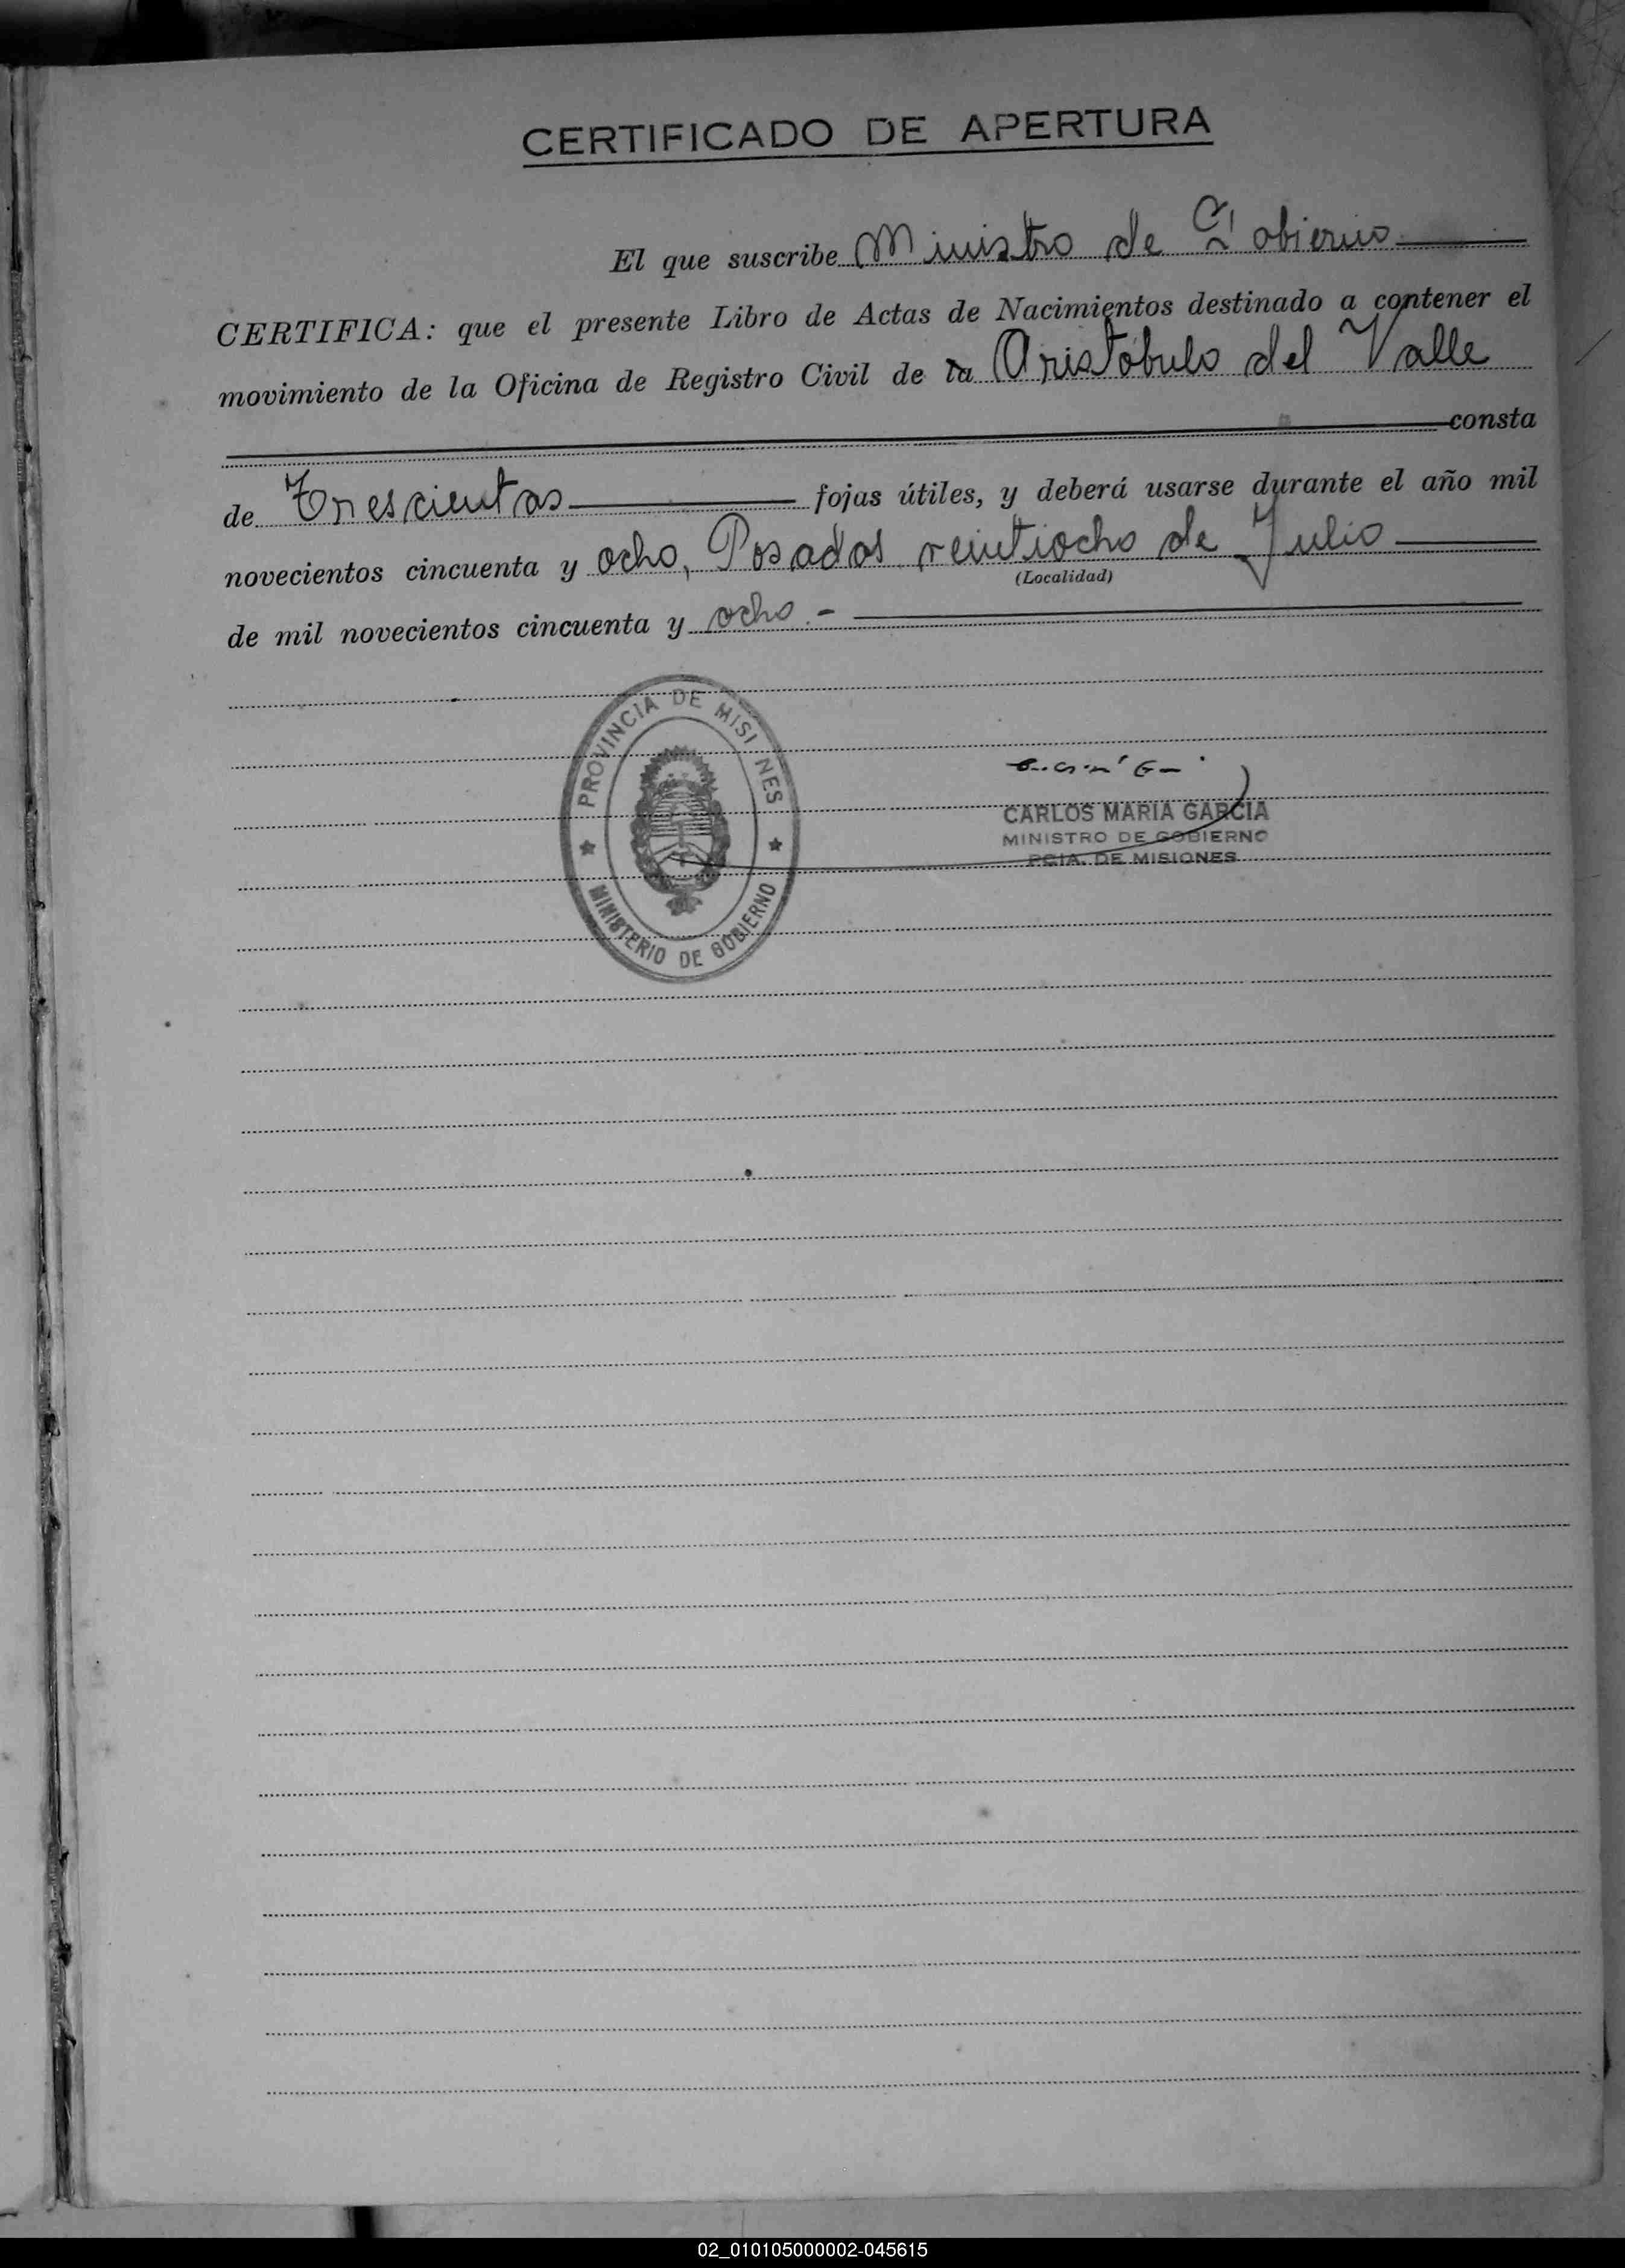 CERTIFICADO DE APERTURA
El que suscribe Ministro de Gobierno
CERTIFICA: que el presente Libro de Actas de Nacimientos destinado a contener el
movimiento de la Oficina de Registro Civil de la Aristóbulo del Valle
consta
de Trescientas fojas útiles, y deberá usarse durante el año mil
novecientos cincuenta y ocho, Posadas veintiocho de Julio
(Localidad)
de mil novecientos cincuenta y ocho.-
PROVINCIA DE MISI NES
MINISTERIO DE GOBIERNO
CARLOS MARIA GARCIA
MINISTRO DE GOBIERNO
PCIA. DE MISIONES
02_010105000002-045615